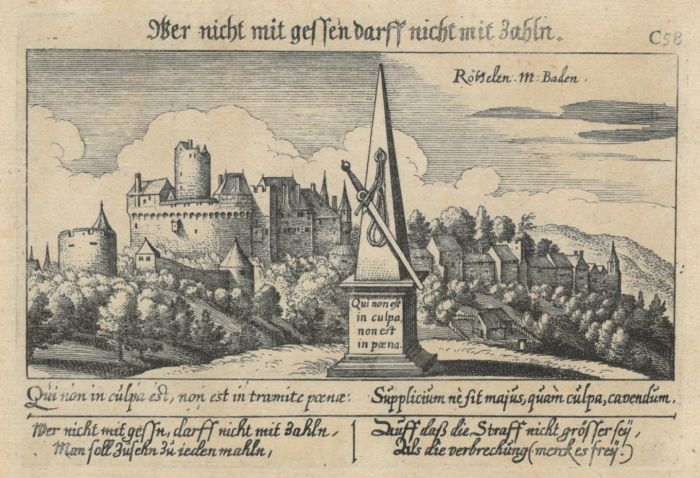 Wer nicht mit gessen darff nicht mit Zahln.
C58
Rötelen. M: Baden.
Qui non est
in culpa,
non est
in pœna.
Qui non in culpa est, non est in tramite pœnæ:
Supplicium nè sit majus, quàm culpa, cavendum.
Wer nicht mit gessn, darff nicht mit Zahln,
Man soll Zusehn Zu ieden mahln,
Auff daß die Straff nicht grösser sey,
Als die verbrechung (merck es frey.)